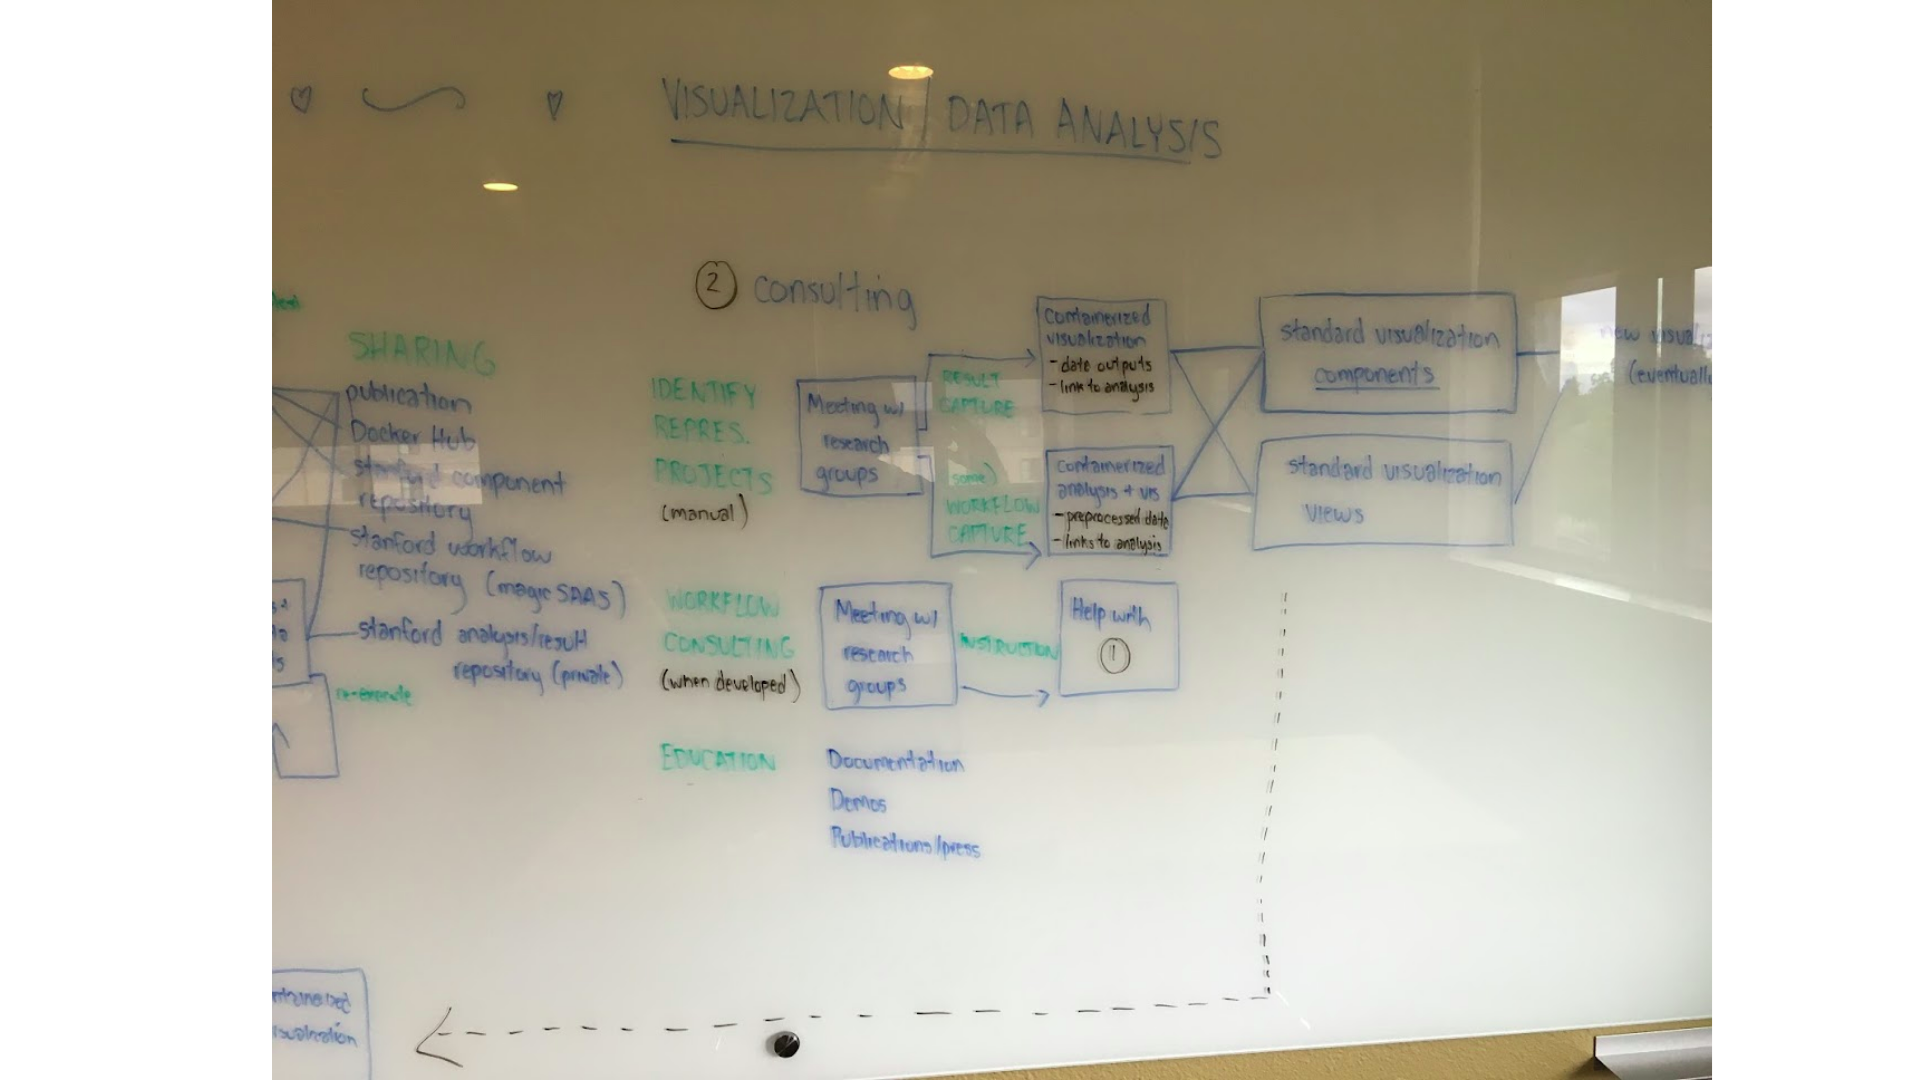 VISUALIZATION / DATA ANALYSIS
SHARING
publication
Docker Hub
stanford component
repository
stanford workflow
repository (magic SAAS)
stanford analysis/result
repository (private)
re-execute
2 consulting
IDENTIFY
REPRES.
PROJECTS
(manual)
Meeting w/
research
groups
RESULT
CAPTURE
(some)
WORKFLOW
CAPTURE
Containerized
visualization
- data outputs
- link to analysis
Containerized
analysis + vis
- preprocessed data
- links to analysis
standard visualization
components
standard visualization
views
new
(eventually
WORKFLOW
CONSULTING
(when developed)
Meeting w/
research
groups
INSTRUCTION
Help with
1
EDUCATION
Documentation
Demos
Publications/press